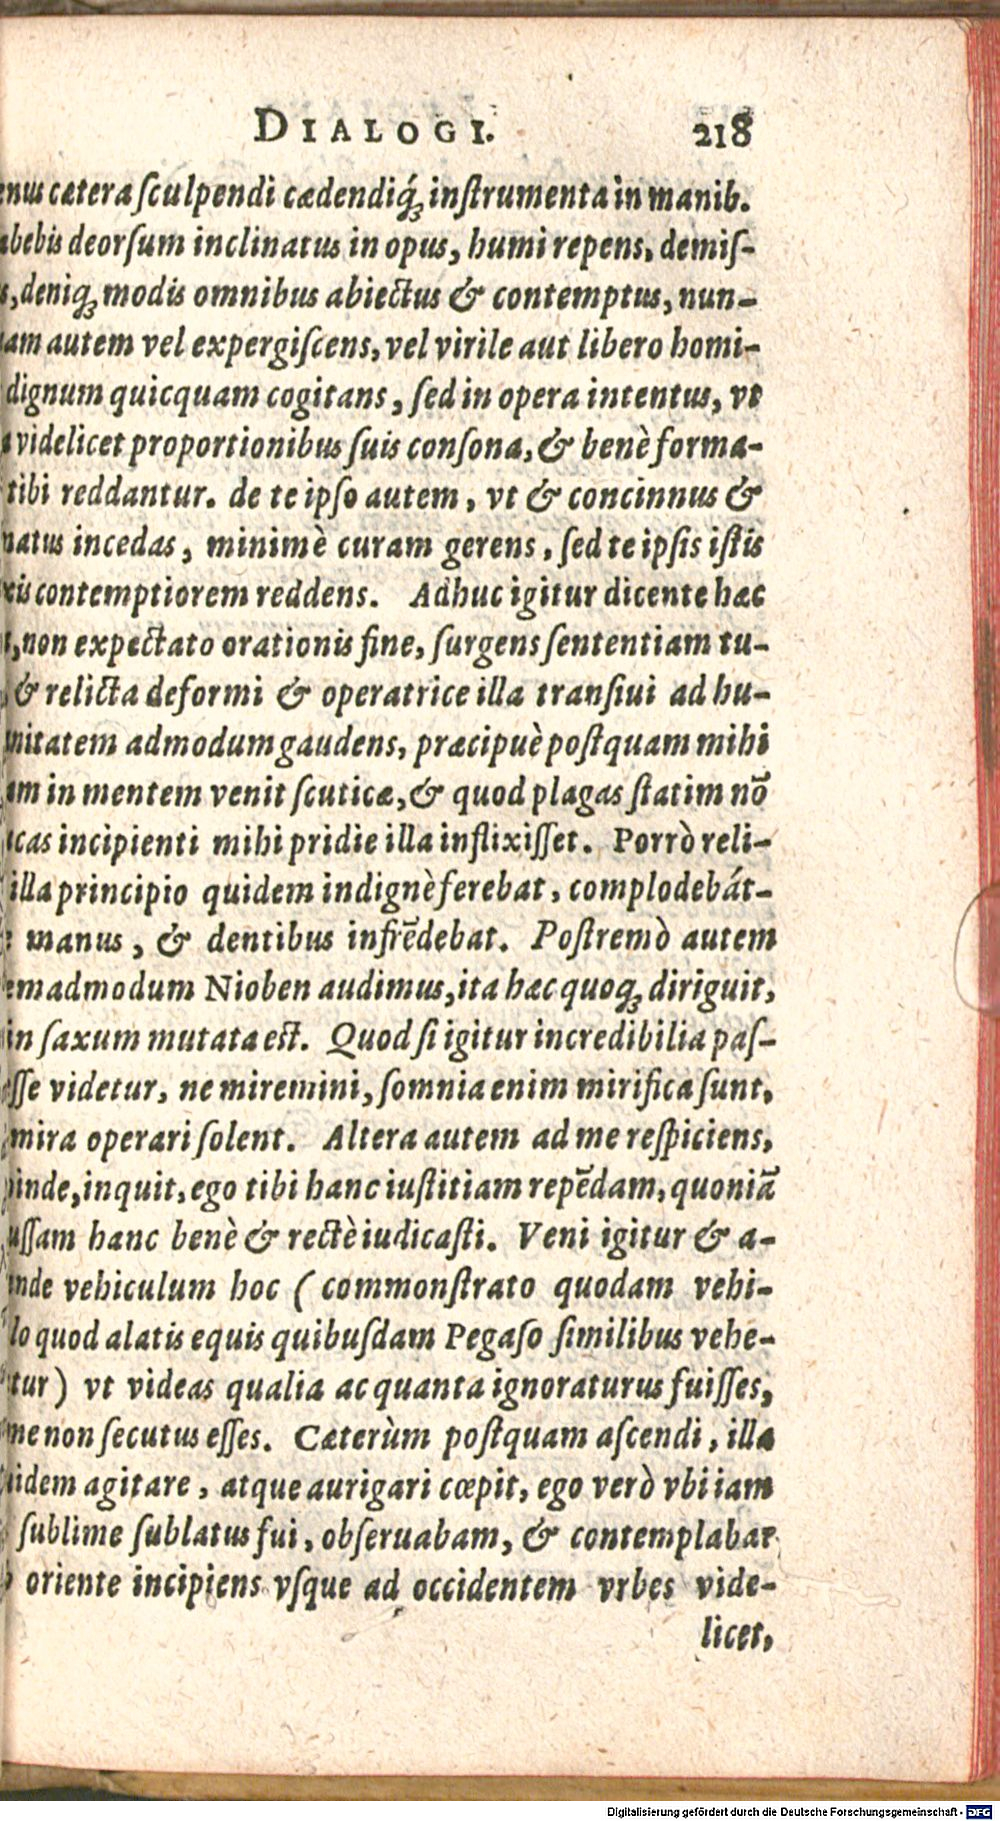 DIALOGI. 218
cætera sculpendi cædendiq́ꝫ instrumenta in manib.
deorsum inclinatus in opus, humi repens, demis-
deniqꝫ modis omnibus abiectus & contemptus, nun-
autem vel expergiscens, vel virile aut libero homi-
dignum quicquam cogitans, sed in opera intentus, vt
videlicet proportionibus suis consona, & benè forma-
tibi reddantur. de te ipso autem, vt & concinnus &
incedas, minimè curam gerens, sed te ipsis istis
contemptiorem reddens. Adhuc igitur dicente hæc
non expectato orationis fine, surgens sententiam tu-
& relicta deformi & operatrice illa transiui ad hu-
nitatem admodum gaudens, præcipuè postquam mihi
in mentem venit scuticæ, & quod plagas statim nō
incipienti mihi pridie illa inflixisset. Porrò reli-
illa principio quidem indignè ferebat, complodebát-
manus, & dentibus infrēdebat. Postremò autem
emadmodum Nioben audimus, ita hæc quoqꝫ diriguit,
in saxum mutata est. Quod si igitur incredibilia pas-
sse videtur, ne miremini, somnia enim mirifica sunt,
mira operari solent. Altera autem ad me respiciens,
inde, inquit, ego tibi hanc iustitiam repēdam, quoniā
ussam hanc benè & rectè iudicasti. Veni igitur & a-
nde vehiculum hoc (commonstrato quodam vehi-
lo quod alatis equis quibusdam Pegaso similibus vehe-
tur) vt videas qualia ac quanta ignoraturus fuisses,
me non secutus esses. Cæterùm postquam ascendi, illa
uidem agitare, atque aurigari cœpit, ego verò vbi iam
sublime sublatus fui, obseruabam, & contemplabar
oriente incipiens vsque ad occidentem vrbes vide-
licet,
Digitalisierung gefördert durch die Deutsche Forschungsgemeinschaft - DFG